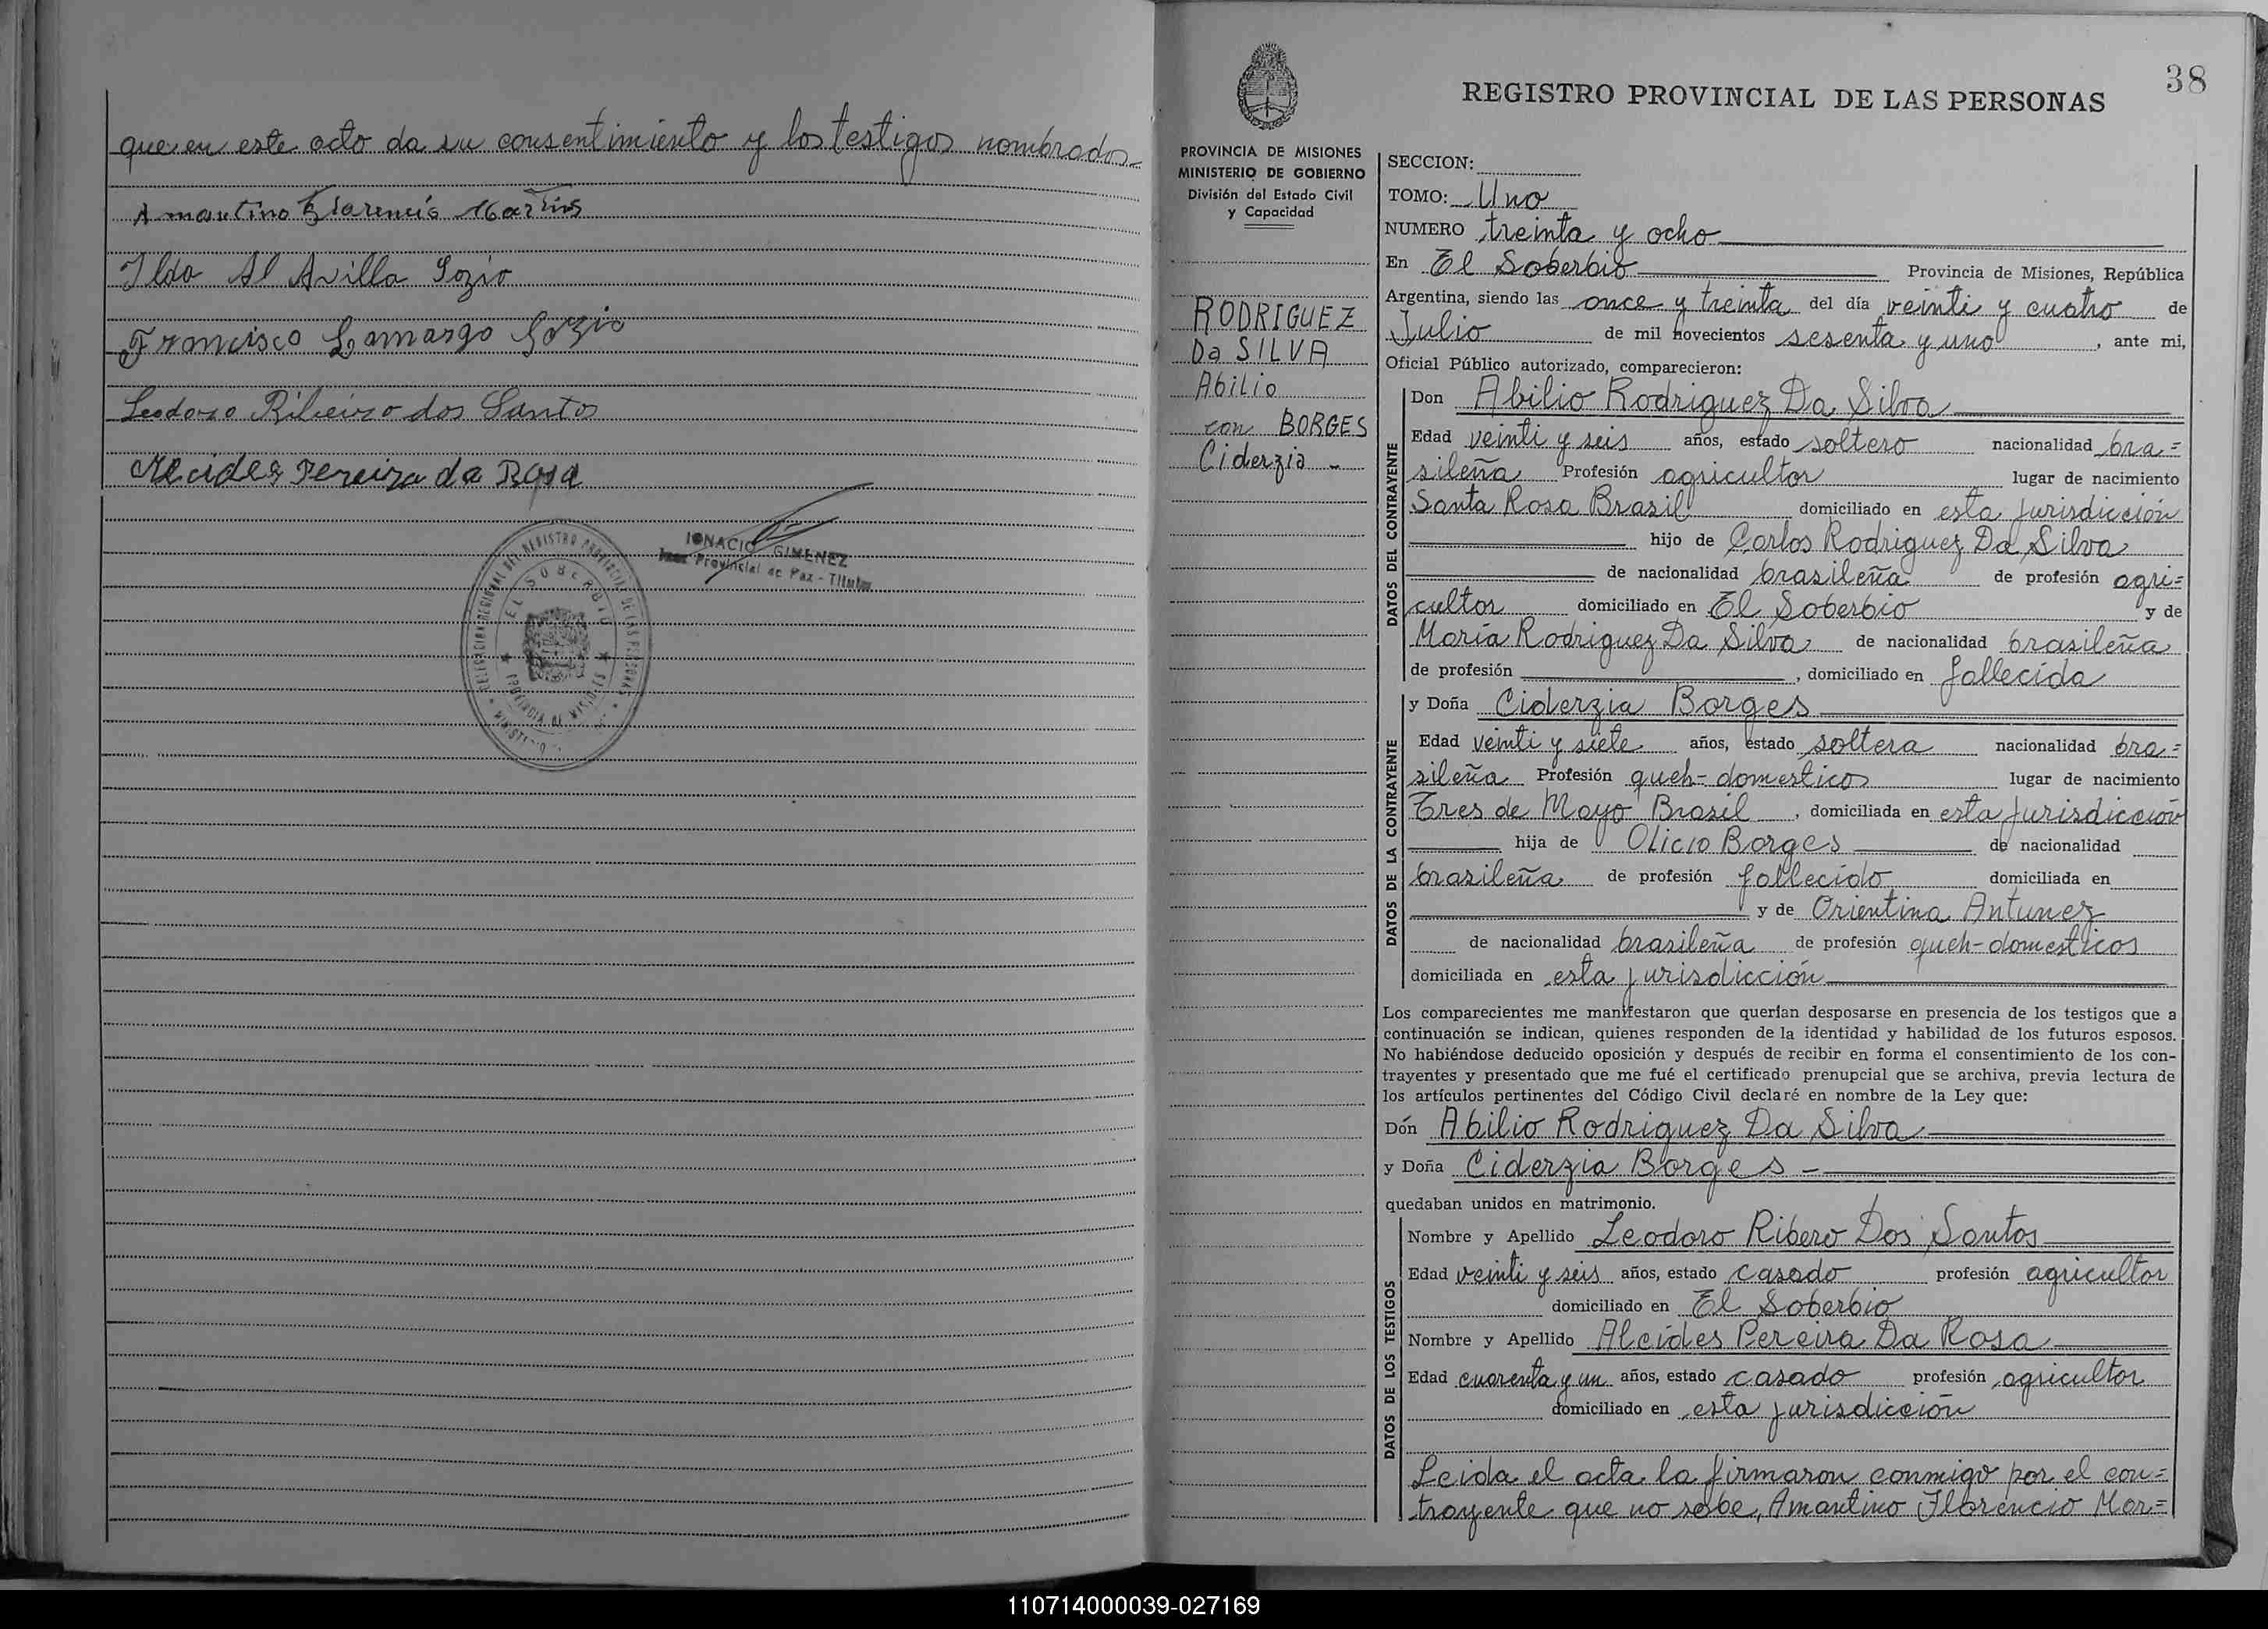 que en este acto da su consentimiento y los testigos nombrados.-
Amantino Florencio Martins
Ildo Al Avilla Sozio
Francisco Camargo Sozio
Leodoro Ribeiro dos Santos
Alcides Pereira da Rosa
IGNACIO GIMENEZ
Juez Provincial de Paz - Titular
DELEGACION REGIONAL DEL REGISTRO PROVINCIAL DE LAS PERSONAS
EL SOBERBIO
PROVINCIA DE MISIONES
38
REGISTRO PROVINCIAL DE LAS PERSONAS
PROVINCIA DE MISIONES
MINISTERIO DE GOBIERNO
División del Estado Civil
y Capacidad
RODRIGUEZ
Da SILVA
Abilio
con BORGES
Ciderzia -
SECCION:
TOMO: Uno
NUMERO treinta y ocho
En El Soberbio Provincia de Misiones, República
Argentina, siendo las once y treinta del día veinti y cuatro de
Julio de mil novecientos sesenta y uno, ante mi,
Oficial Público autorizado, comparecieron:
DATOS DEL CONTRAYENTE
Don Abilio Rodriguez Da Silva
Edad veinti y seis años, estado soltero nacionalidad bra=
sileña Profesión agricultor lugar de nacimiento
Santa Rosa Brazil domiciliado en esta jurisdicción
hijo de Carlos Rodriguez Da Silva
de nacionalidad brasileña de profesión agri=
cultor domiciliado en El Soberbio y de
María Rodriguez Da Silva de nacionalidad brasileña
de profesión , domiciliado en fallecida
DATOS DE LA CONTRAYENTE
y Doña Ciderzia Borges
Edad veinti y siete años, estado soltera nacionalidad bra=
sileña Profesión queh-domesticos lugar de nacimiento
Tres de Mayo Brasil, domiciliada en esta jurisdicción
hija de Olicio Borges de nacionalidad
brasileña de profesión fallecido domiciliada en
y de Orientina Antunez
de nacionalidad brasileña de profesión queh-domesticos
domiciliada en esta jurisdicción
Los comparecientes me manifestaron que querían desposarse en presencia de los testigos que a
continuación se indican, quienes responden de la identidad y habilidad de los futuros esposos.
No habiéndose deducido oposición y después de recibir en forma el consentimiento de los con-
trayentes y presentado que me fué el certificado prenupcial que se archiva, previa lectura de
los artículos pertinentes del Código Civil declaré en nombre de la Ley que:
Dón Abilio Rodriguez Da Silva
y Doña Ciderzia Borges -
quedaban unidos en matrimonio.
DATOS DE LOS TESTIGOS
Nombre y Apellido Leodoro Ribero Dos Santos
Edad veinti y seis años, estado casado profesión agricultor
domiciliado en El Soberbio
Nombre y Apellido Alcides Pereira Da Rosa
Edad cuarenta y un años, estado casado profesión agricultor
domiciliado en esta jurisdicción
Leida el acta la firmaron conmigo por el con=
trayente que no sabe, Amantino Florencio Mar=
110714000039-027169